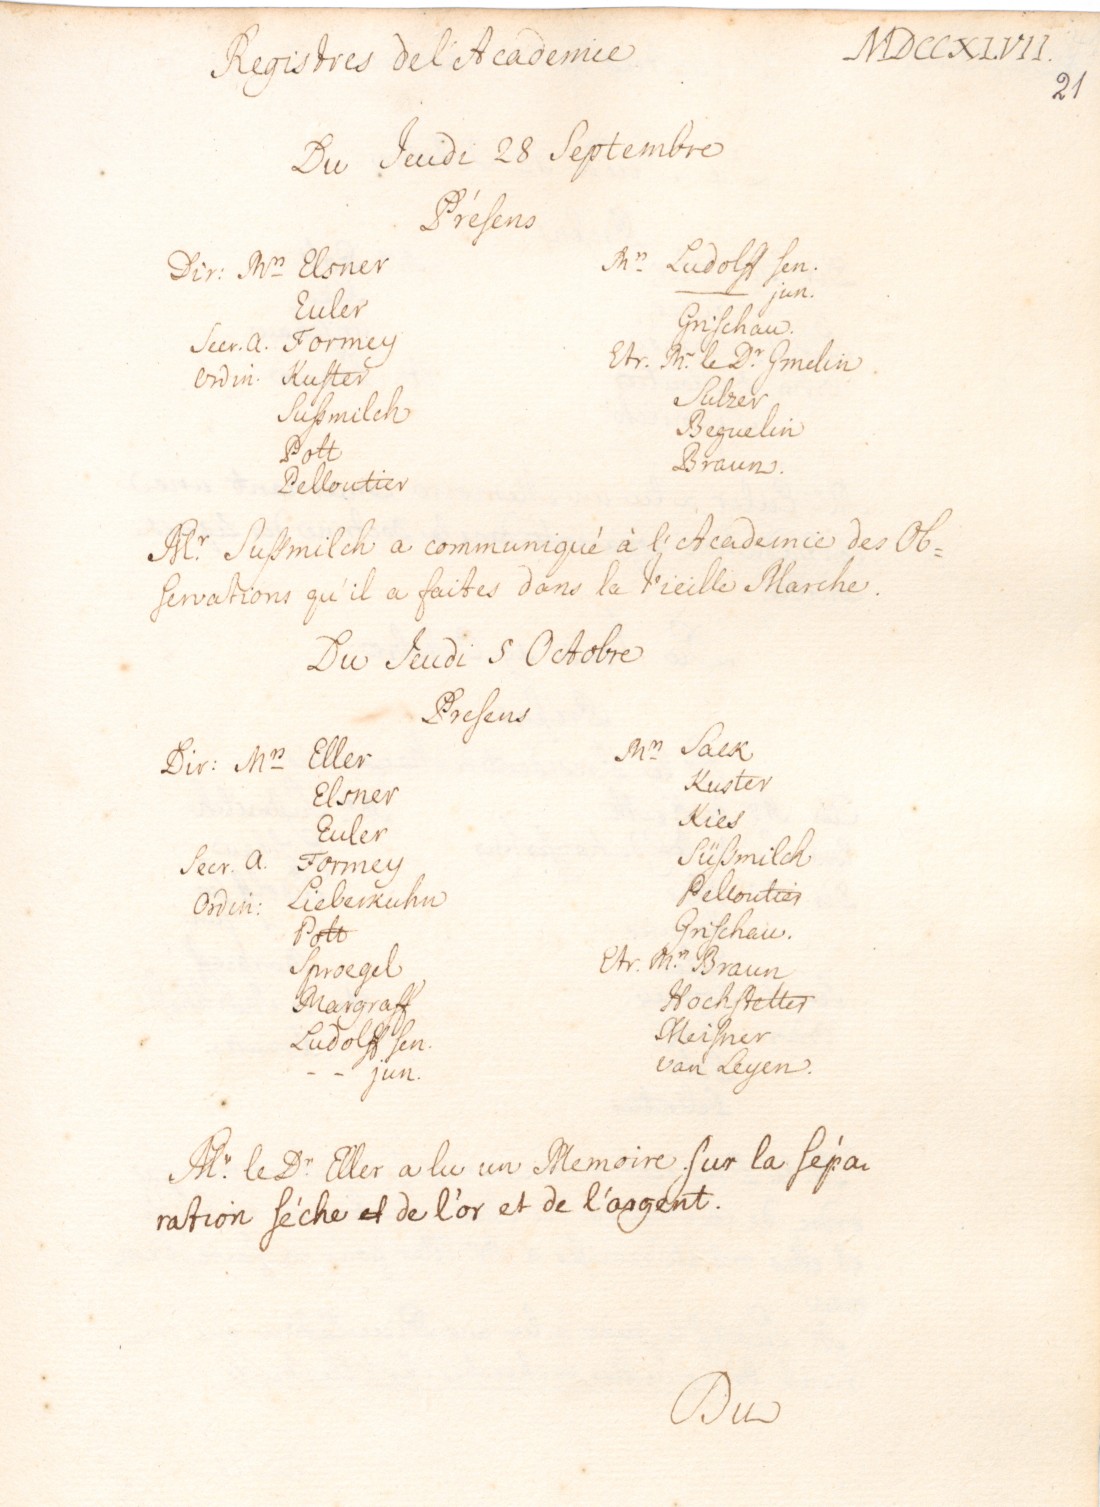 Registres de l'Academie
MDCCXLVII.
21
Du Jeudi 28 Septembre
Présens
Dir: Mrs Elsner
Euler
Secr. A. Formey
Ordin. Kuster
Sußmilch
Pott
Pelloutier
Mrs Ludolff sen.
——— jun.
Grischau.
Etr. Mr. le Dr Gmelin
Sulzer
Beguelin
Braun.
Mr. Sußmilch a communiqué à l'Academie des Ob=
servations qu'il a faites dans la Vieille Marche.
Du Jeudi 5 Octobre
Presens
Dir: Mrs Eller
Elsner
Euler
Secr. A. Formey
Ordin: Lieberkuhn
Pott
Sproegel
Margraff
Ludolff sen.
- - jun.
Mrs Sack
Kuster
Kies
Süßmilch
Pelloutier
Grischau.
Etr. Mrs Braun
Hochstetter
Meisner
van Leyen.
Mr. le Dr. Eller a lu un Memoire sur la sépa-
ration séche et de l'or et de l'argent.
Du